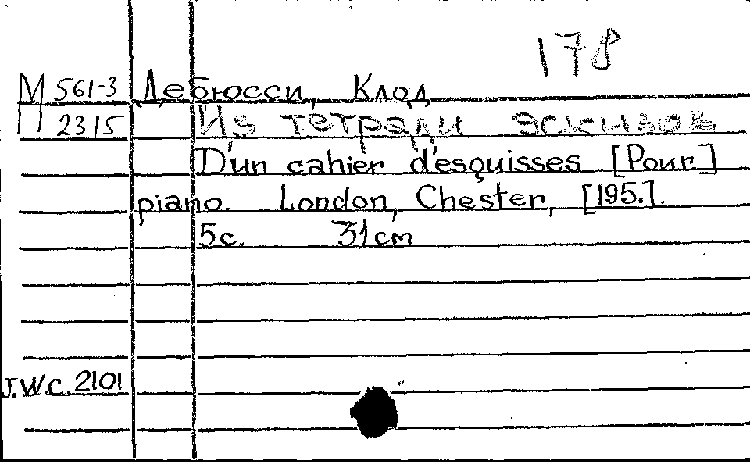 178
М 561-3 Дебюсси, Клод
П 2315 Из тетради эскизов
D'un cahier d'esquisses [Pour]
piano. London, Chester, [195.].
5c. 31cm
J.W.C. 2101